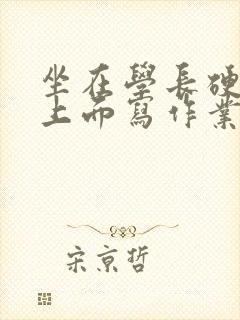 坐在學長硬
上而寫作業
宋京哲